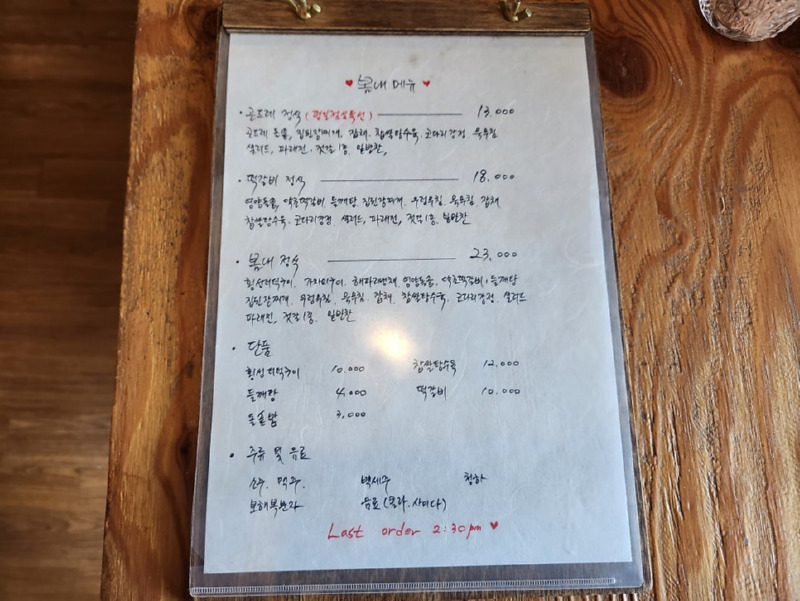 ♥ 봄내 메뉴 ♥
• 곤드레 정식 (평일점심특선) 13,000
곤드레 돌솥, 집된장찌개, 잡채, 찹쌀탕수육, 코다리강정, 묵무침
샐러드, 파래전, 젓갈1종, 밑반찬,
• 떡갈비 정식 18,000
영양돌솥, 떡갈비, 들깨탕, 집된장찌개, 우렁무침, 묵무침, 잡채
찹쌀탕수육, 코다리강정, 샐러드, 파래전, 젓갈1종, 밑반찬
• 봄내 정식 23,000
횡성더덕구이, 가자미구이, 해파리냉채, 영양돌솥, 떡갈비, 들깨탕
집된장찌개, 우렁무침, 묵무침, 잡채, 찹쌀탕수육, 코다리강정, 샐러드
파래전, 젓갈1종, 밑반찬
• 단품
횡성더덕구이 10,000 찹쌀탕수육 12,000
들깨탕 4,000 떡갈비 10,000
돌솥밥 3,000
• 주류 및 음료
소주, 맥주, 백세주 청하
보해복분자 음료 (콜라, 사이다)
Last order 2:30pm ♥